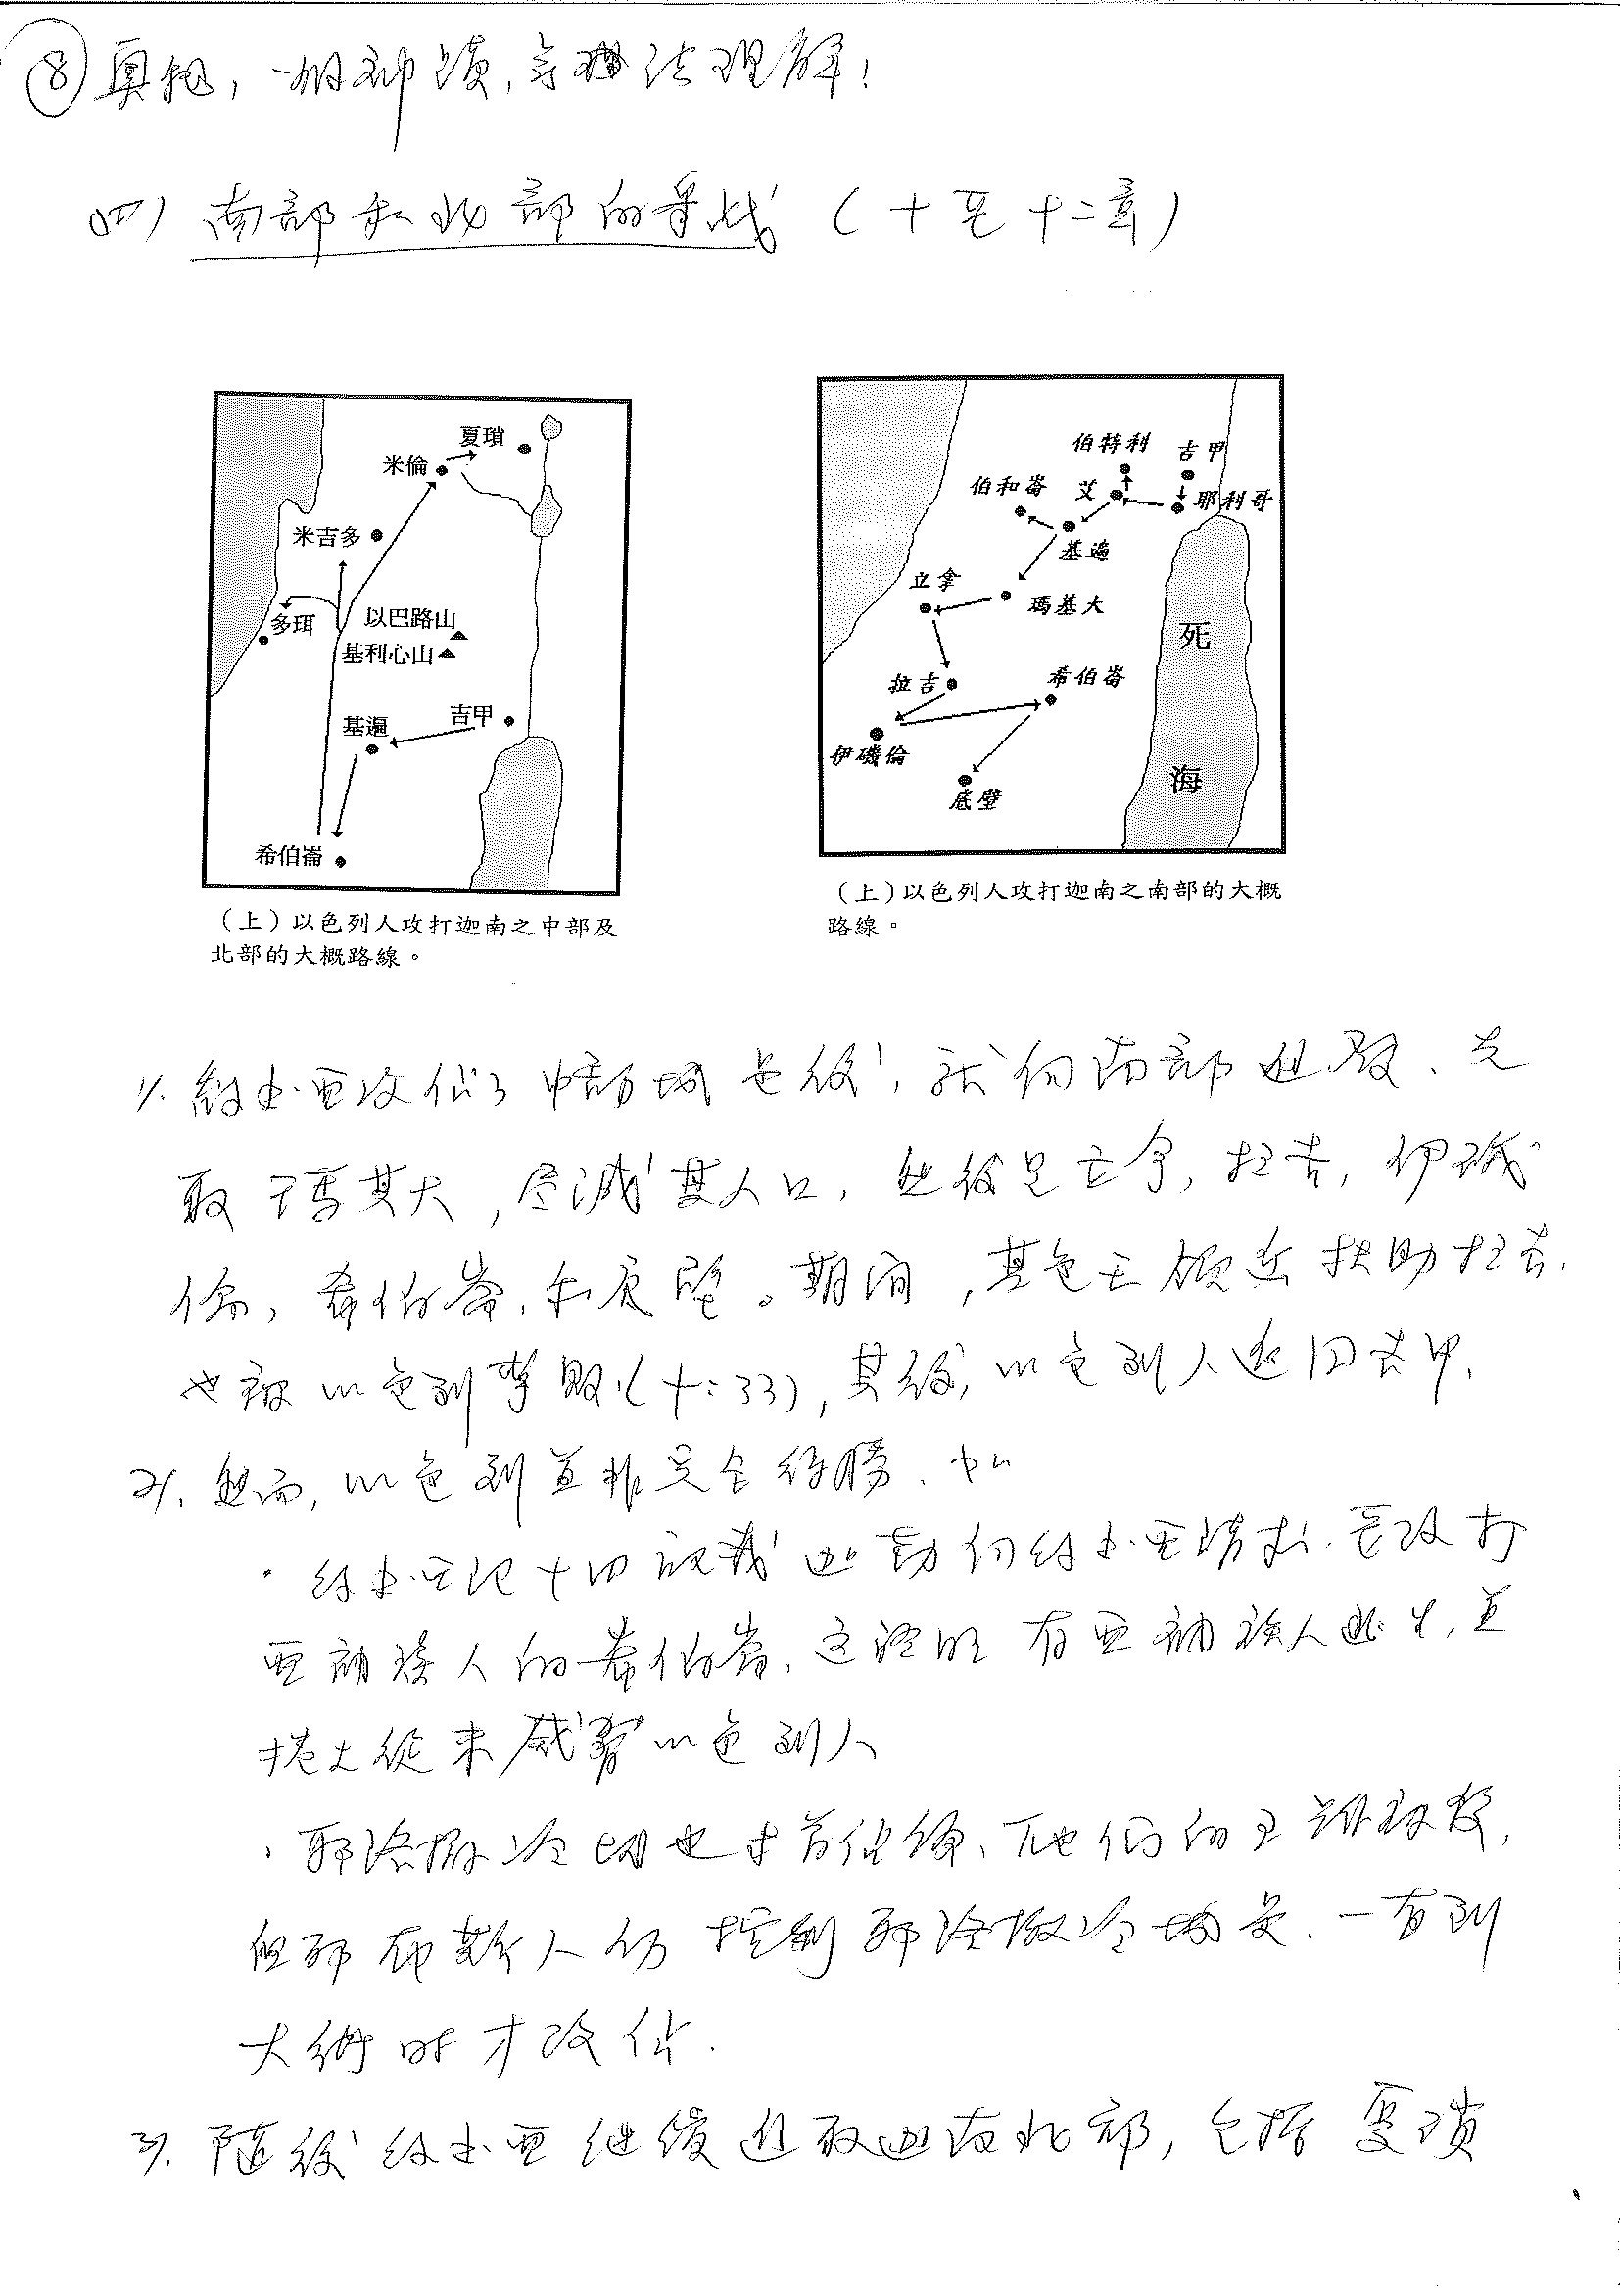 ⑧ 真相, 一如神蹟, 無法理解!
(四) 南部和北部的爭战 (十至十二章)
夏瑣
米倫
米吉多
多珥
以巴路山
基利心山
基遍
吉甲
希伯崙
(上)以色列人攻打迦南之中部及
北部的大概路線。
伯特利
吉甲
伯和崙
艾
耶利哥
基遍
立拿
瑪基大
死
拉吉
希伯崙
伊磯倫
海
底璧
(上)以色列人攻打迦南之南部的大概
路線。
1. 約书亚攻佔了中部城邑後, 就向南部進發、先
取瑪基大, 尽滅其人口, 然後是立拿, 拉吉, 伊磯
倫, 希伯崙, 和底璧。期間, 基色王領兵扶助拉吉,
也被以色列擊敗(十:33), 其後, 以色列人返回吉甲.
2. 然而, 以色列並非完全得勝、如
· 約书亚記十四記載迦勒向約书亚請求, 去攻打
亚衲族人的希伯崙, 这證明有亚衲族人逃生, 並
捲土從来威脅以色列人
· 耶路撒冷城也未曾佔領、他們的王雖被殺,
但耶布斯人仍控制耶路撒冷城
大衛時才攻佔.
3. 隨後約书亚继續進取迦南北部, 包括夏瑣